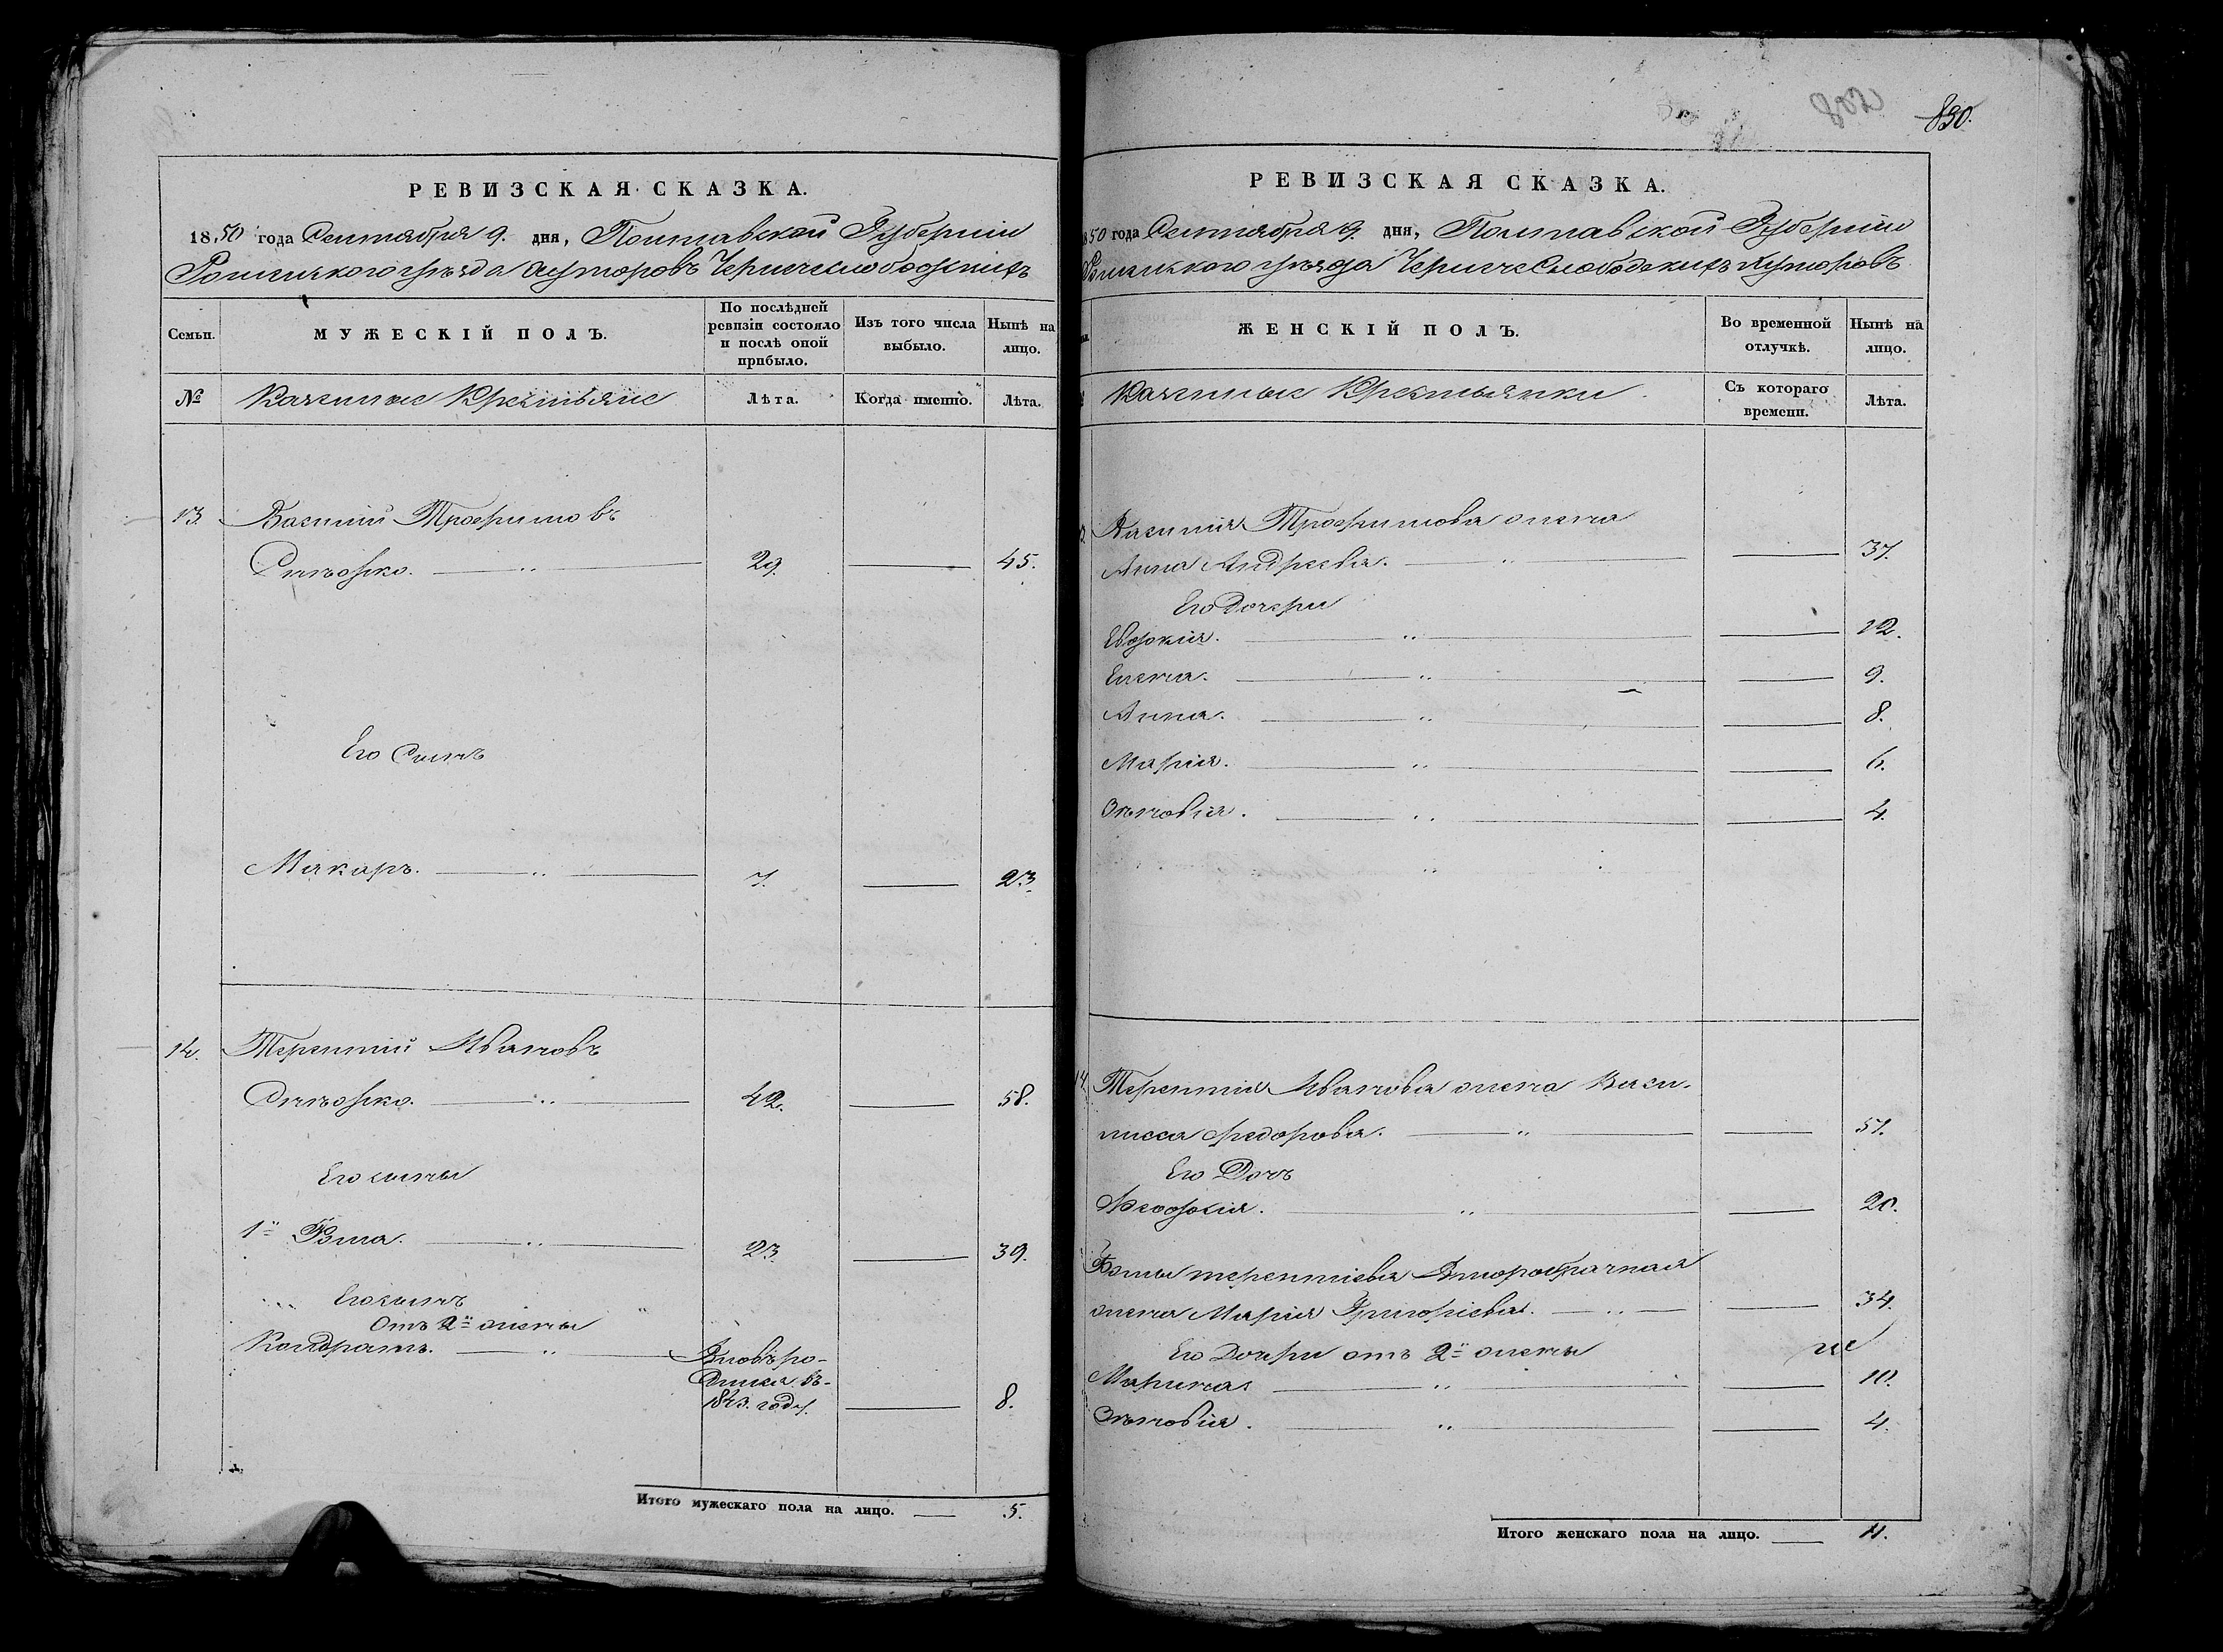 830.
РЕВИЗСКАЯ СКАЗКА.
1850 года Сентября 9. дня, Полтавской Губернии
Роменского уезда хуторовъ Чернечеслободскихъ
Семьи.
МУЖЕСКІЙ ПОЛЪ.
По послѣдней ревизіи состояло и послѣ оной прибыло.
Изъ того числа выбыло.
Нынѣ на лицо.
№
Казенные Крестьяне
Лѣта.
Когда именно.
Лѣта.
13. Василий Трофимовъ
29. 45.
Его Сынъ
Макаръ. 7. 23.
14. Терентий Ивановъ
42. 58.
Его сыны
1й Фома. 23. 39.
Его сынъ
Отъ 2й жены
Кондратъ. Вновь ро-
дился въ
1843. году. 8.
Итого мужескаго пола на лицо. 5.
РЕВИЗСКАЯ СКАЗКА.
1850 года Сентября 9. дня, Полтавской Губернии
Роменского уезда Чернечеслободскихъ хуторовъ
ЖЕНСКІЙ ПОЛЪ.
Во временной отлучкѣ.
Нынѣ на лицо.
Казенные Крестьянки
Съ котораго времени.
Лѣта.
Василия Трофимова жена
Анна Андреева. 37.
Его Дочери
Евдокия. 12.
Елена. 9.
Анна. 8.
Мария. 6.
Зѣновия. 4.
14. Терентия Иванова жена Васи-
лисса Федорова. 57.
Его Дочь
Феодосия. 20.
Фомы терентиева Второбрачная
жена Мария Григориева. 34.
Его Дочери отъ 2й жены
Марина 10.
Зѣновия. 4.
Итого женскаго пола на лицо. 11.